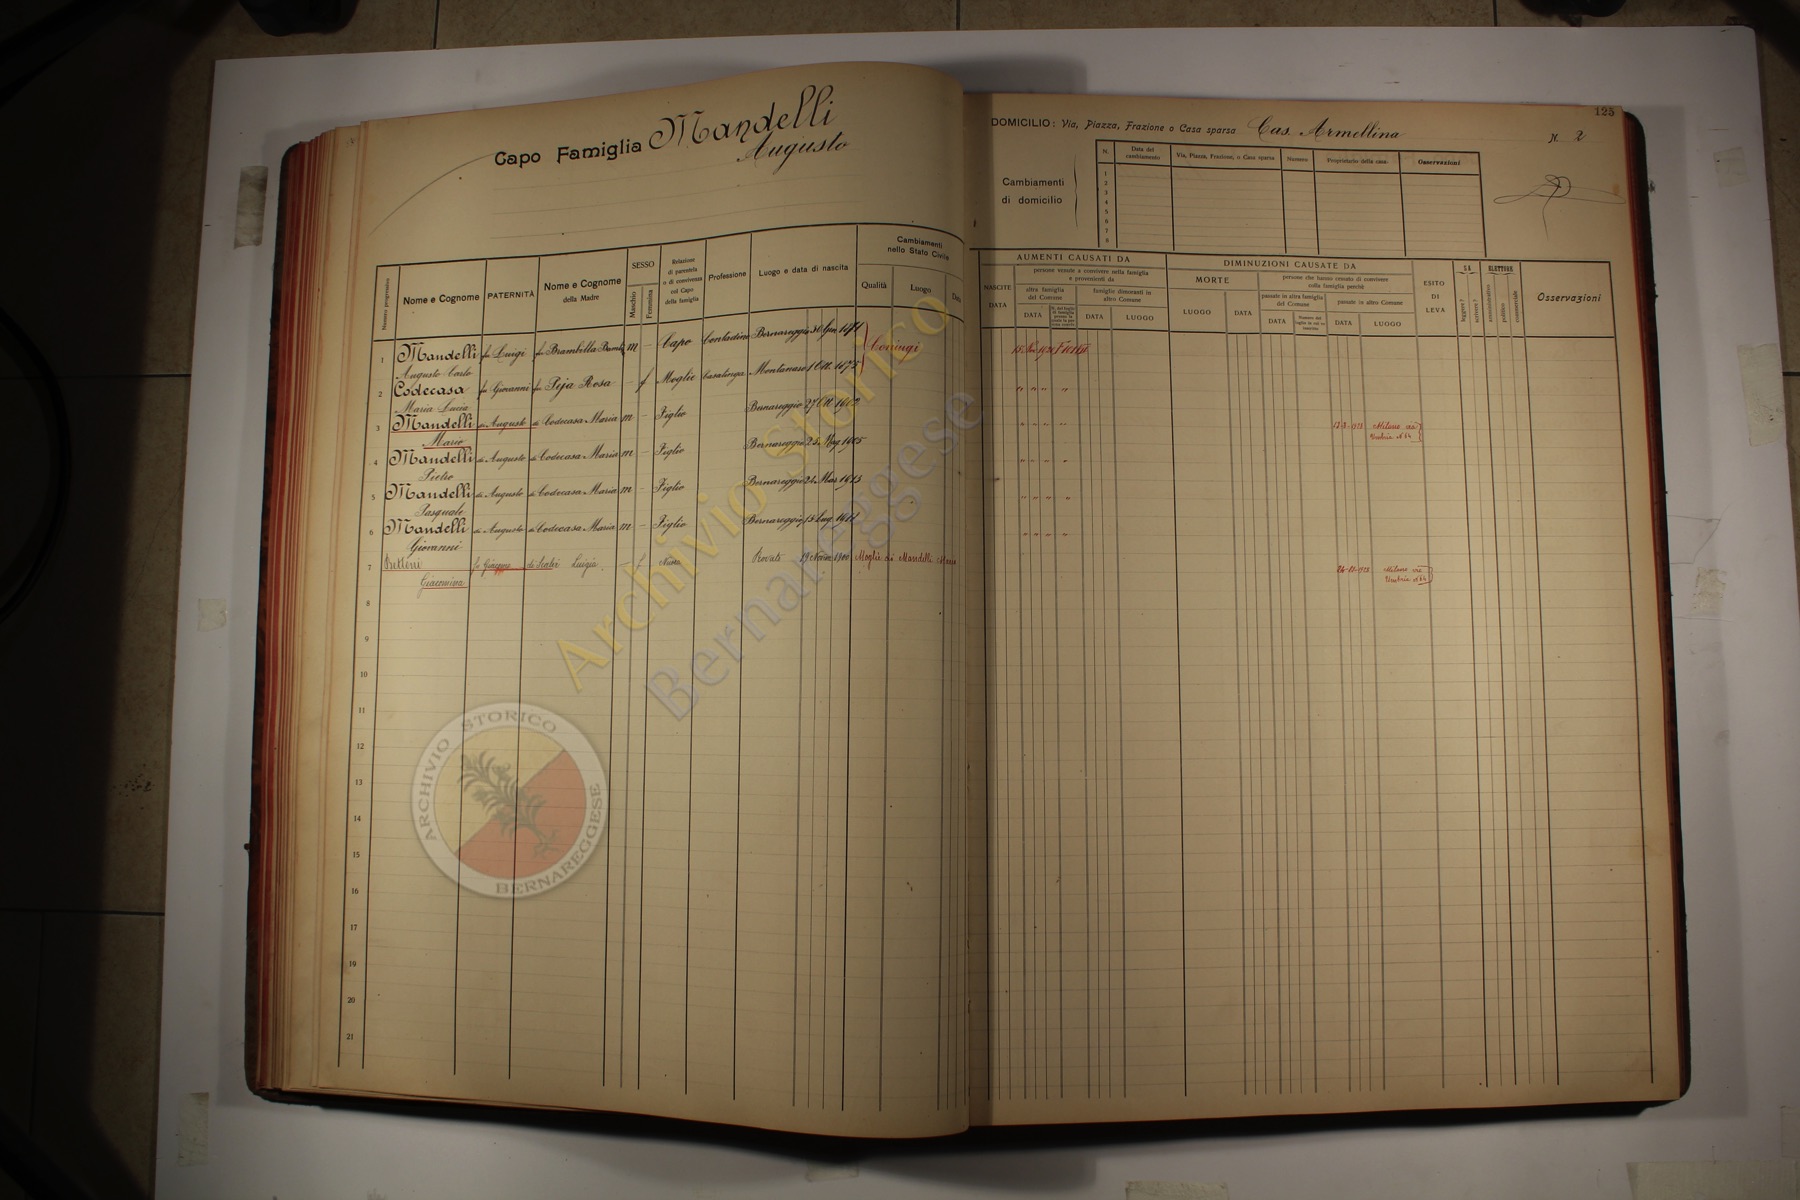 125
Capo Famiglia Mandelli
Augusto
DOMICILIO: Via, Piazza, Frazione o Casa sparsa Cas. Armellina N. 2
Cambiamenti
di domicilio
N. Data del cambiamento Via, Piazza, Frazione, o Casa sparsa Numero Proprietario della casa Osservazioni
1
2
3
4
5
6
7
8
Numero progressivo
Nome e Cognome
PATERNITÀ
Nome e Cognome
della Madre
SESSO
Maschio
Femmina
Relazione
di parentela
o di convivenza
col Capo
della famiglia
Professione
Luogo e data di nascita
Cambiamenti
nello Stato Civile
Qualità
Luogo
AUMENTI CAUSATI DA
NASCITE
DATA
persone venute a convivere nella famiglia
e provenienti da
altra famiglia
del Comune
DATA
famiglie dimoranti in
altro Comune
DATA
LUOGO
DIMINUZIONI CAUSATE DA
MORTE
LUOGO
DATA
persone che hanno cessato di convivere
colla famiglia perchè
passate in altra famiglia
del Comune
DATA
passate in altro Comune
DATA
LUOGO
ESITO
DI
LEVA
SA
leggere?
scrivere?
ELETTORE
amministrativo
politico
commerciale
Osservazioni
1 Mandelli fu Luigi fu Brambilla m - Capo Contadino Bernareggio 1871 Coniugi
Augusto Carlo
2 Codecasa fu Giovanni fu Peja Rosa - f Moglie Casalinga Montanaso 1 Ott. 1875
Maria Lucia
3 Mandelli di Augusto di Codecasa Maria m - Figlio Bernareggio 27 Ott. 1902 Milano via
Mario
4 Mandelli di Augusto di Codecasa Maria m - Figlio Bernareggio 25 Mag 1905
Pietro
5 Mandelli di Augusto di Codecasa Maria m - Figlio Bernareggio 24 Mar 1913
Pasquale
6 Mandelli di Augusto di Codecasa Maria m - Figlio Bernareggio 15 Lug. 1911
Giovanni
7 fu Giacomo di Luigia - f Nuora Rovato 19 1900 Moglie di Mandelli Mario Milano via
Giacomina
8
9
10
11
12
13
14
15
16
17
18
19
20
21
Archivio Storico
Bernareggese
ARCHIVIO STORICO
BERNAREGGESE